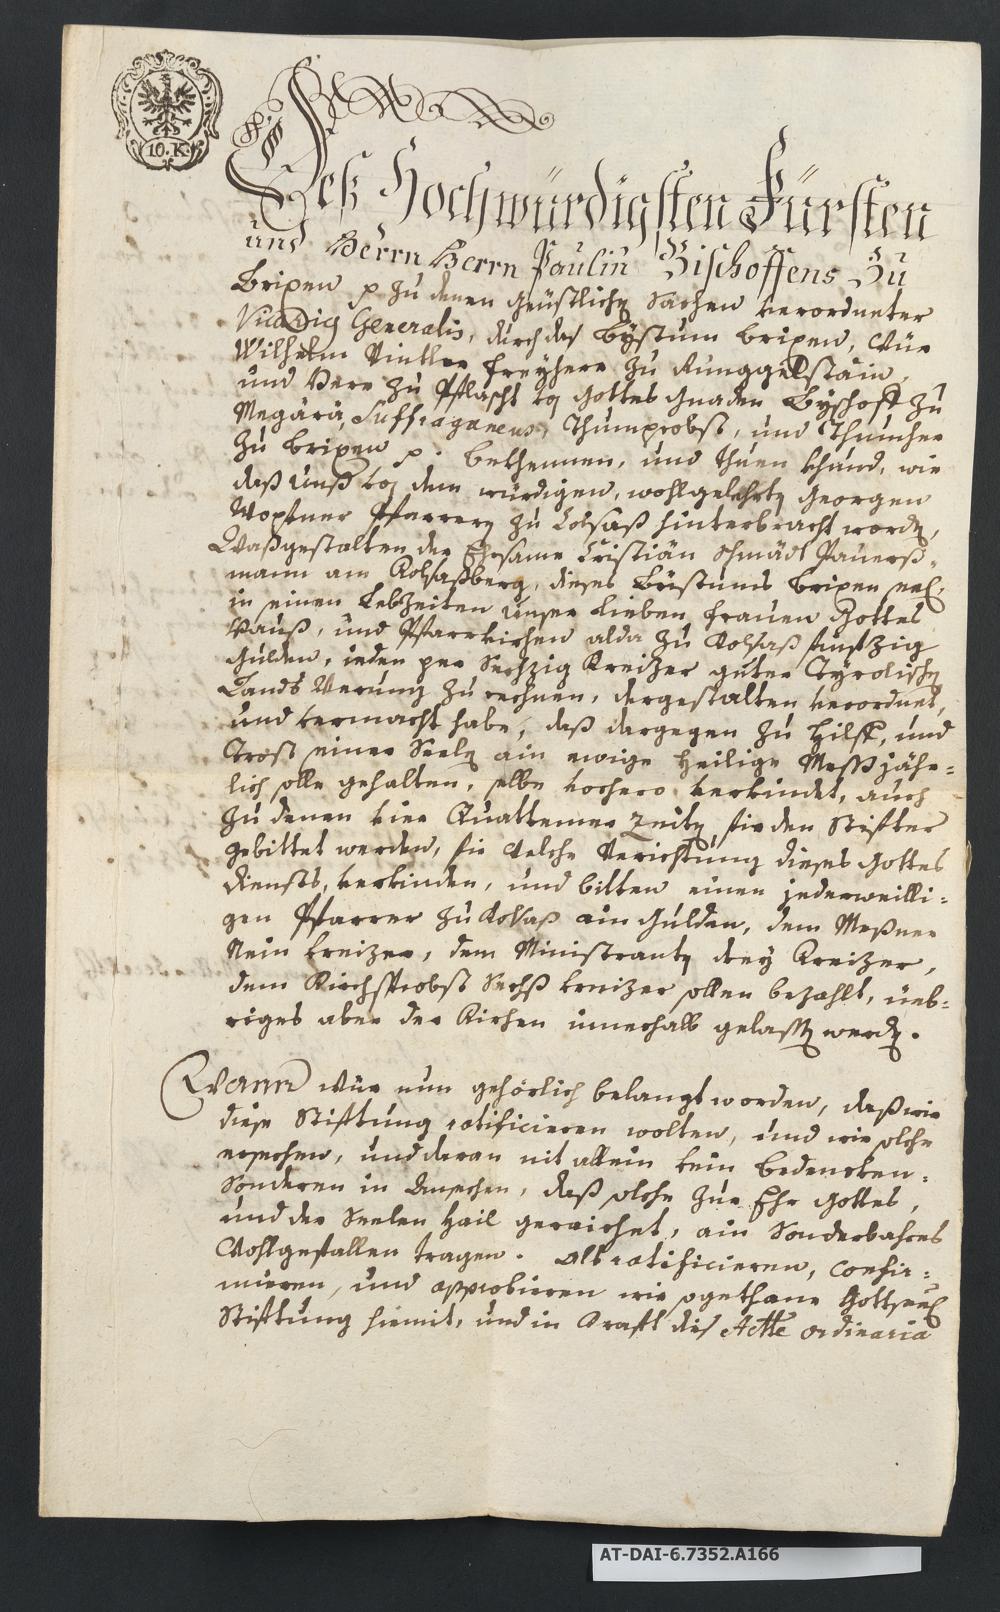 10. K.
Deß Hochwürdigsten Fürsten
und Herrn Herrn Paulin Bischoffens Zu
Brixen p zu denen geüstlichen Sachen verordneter
Vicarig Generalis, durch das Bÿstum Brixen, Wür
Wilhelm Vintler Freÿherr zu Runggelstain,
und Herr zu Pflascht von Gottes Gnaden Bÿschoff zu
Megära, Suffraganeus, Thumprobst, und Thumher
zu Brixen p. bekhennen, und thuen khund, wie
daß unß von dem würdigen, wohlgelehrten Georgen
Mopfner Pfarrern zu Kolsaß hinterbracht worden,
Waßgestalten der Ehrsame Cristiän Schmädl Paurß-
mann am Kolsaßberg, dieses Bistumbs Brixen seel.
in seinen Lebzeiten Unser Lieben Frauen Gottes
Hauß, und Pfarrkirchen alda zu Kolsaß funfzig
Gulden, ieden per Sechzig Kreizer guter Tÿrolischen
Lands Werung zu rechnen, dergestalten verordnet,
und vermacht habe, daß dargegen zu Hilff, und
Trost seiner Seelen ain ewige Heilige Mess jähr=
lich solle gehalten, selbe vorhero verkindet, auch
zu denen vier Quattemer Zeiten, für den Stifter
gebittet werden, für welche Verichtung dieses Gottes
diensts, verkinden, und bitten einen jederweilli=
gen Pfarrer zu Kolsaß ain Gulden, dem Meßner
Nein Kreizer, dem Ministranten dreÿ Kreizer,
dem Kirchprobst Sechß Kreizer sollen bezahlt, üeb=
riges aber der Kirchen innerhalb gelassen werden.
Wann Wür nun gehörlich belangt worden, daß wir
diese Stifftung ratificieren wolten, und wir solche
ersechen, und daran nit allein kein bedencken,
Sonderen in Ansechen, daß solche zur Ehr Gottes,
und der Seelen Hail geraichet, ain Sonderbahres
Wohlgefallen tragen. Alß ratificieren, Confir=
mieren, und approbieren wir sogethane Gottseel.
Stifftung hiemit, und in Krafft diß Actte ordinaria
AT-DAI-6.7352.A166